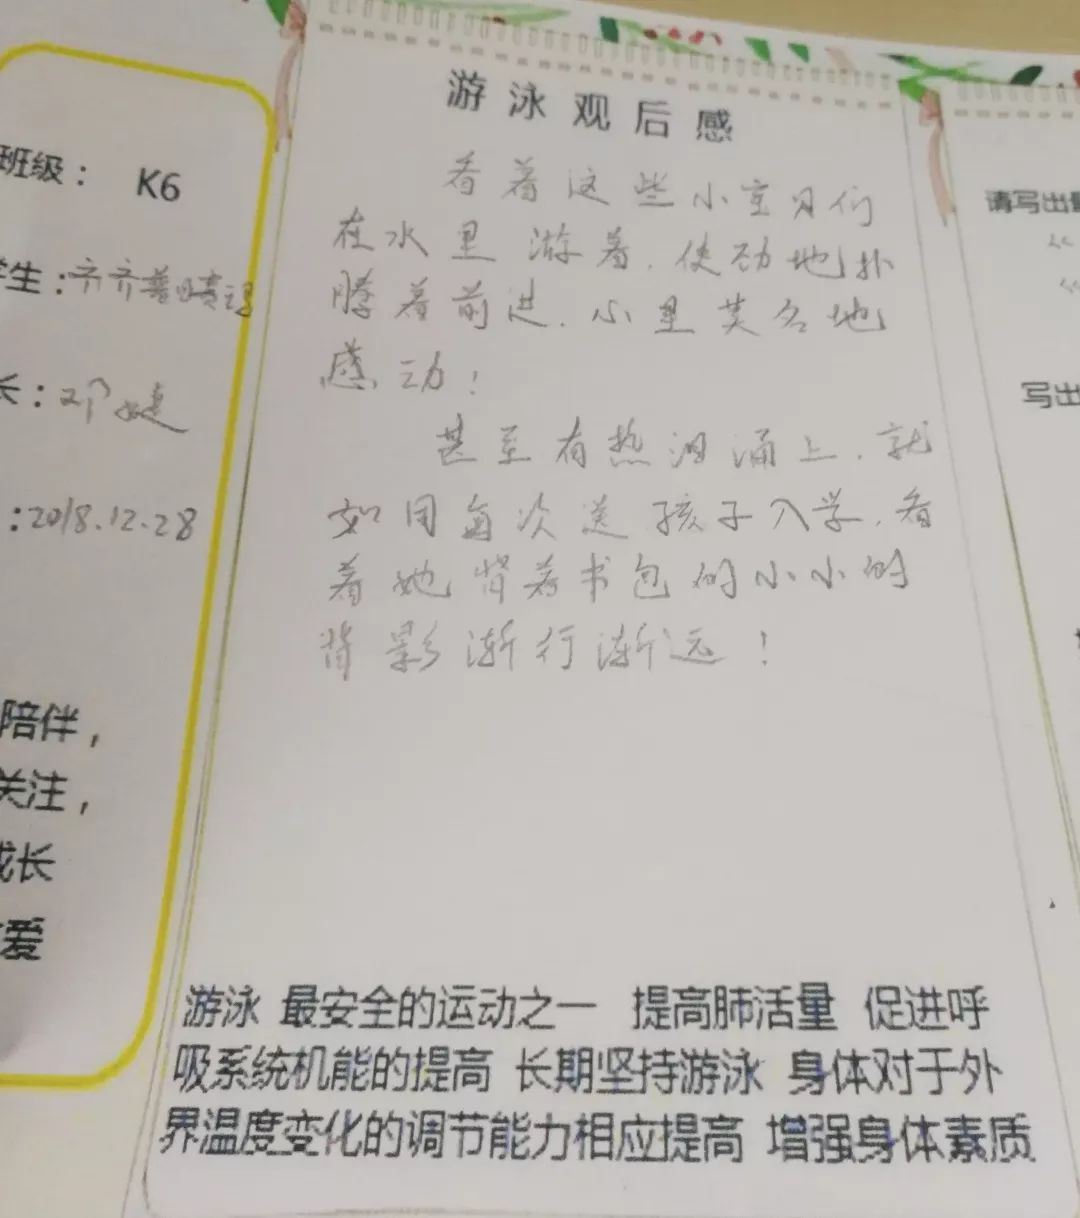 班级： K6
学生：齐齐
长：邓婕
：2018.12.28
陪伴，
关注，
成长
爱
游泳观后感
看着这些小宝贝们
在水里游着，使劲地扑
腾着前进，心里莫名地
感动！
甚至有热泪涌上，就
如同每次送孩子入学，看
着她背着书包的小小的
背影渐行渐远！
游泳 最安全的运动之一 提高肺活量 促进呼
吸系统机能的提高 长期坚持游泳 身体对于外
界温度变化的调节能力相应提高 增强身体素质
请写出
《
《
写出